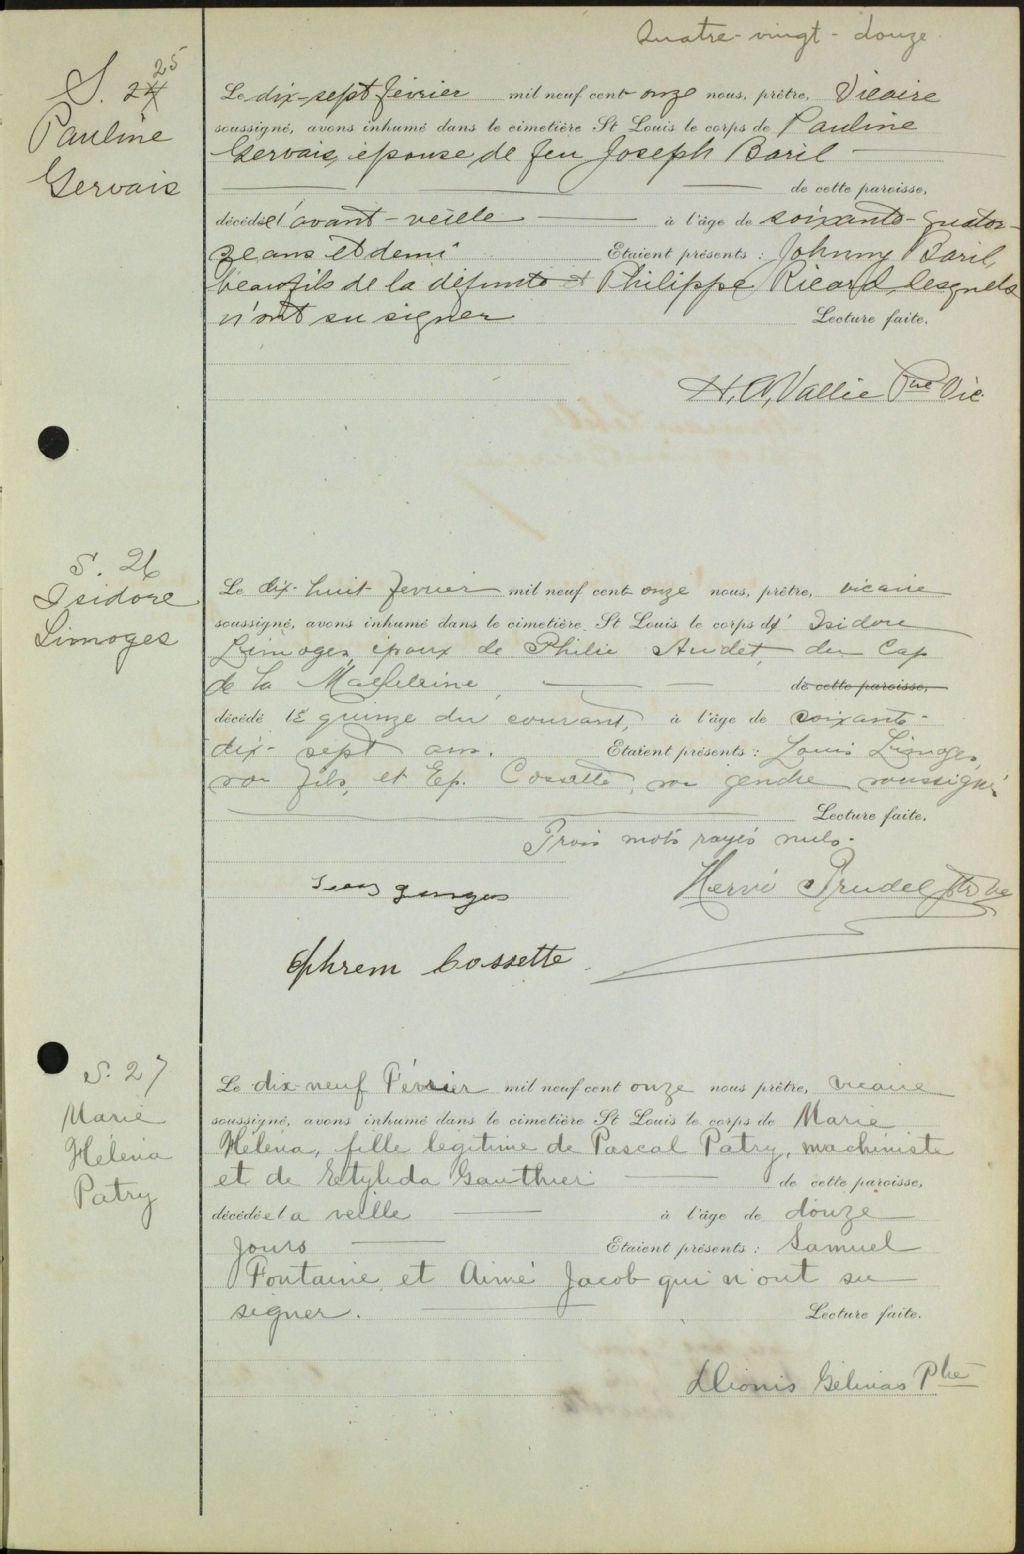 Quatre-vingt-douze
S. 24 25
Pauline
Gervais
Le dix-sept février mil neuf cent onze nous, prêtre, Vicaire
soussigné, avons inhumé dans le cimetière St Louis le corps de Pauline
Gervais, épouse de feu Joseph Baril
de cette paroisse,
décédée l'avant-veille à l'âge de soixante-quator-
ze ans et demi Etaient présents : Johnny Baril,
beau-fils de la défunte et Philippe Ricard, lesquels
n'ont su signer Lecture faite.
H. A. Vallée Ptre Vic.
S. 26
Isidore
Limoges
Le dix-huit fevrier mil neuf cent onze nous, prêtre, vicaire
soussigné, avons inhumé dans le cimetière St Louis le corps d' Isidore
Limoges, époux de Philie Audet, du Cap
de la Madeleine, de cette paroisse,
décédé le quinze du courant, à l'âge de soixante-
dix-sept ans. Etaient présents : Louis Limoges,
son fils, et Ep. Cossette, son gendre soussigné
Lecture faite.
Trois mots rayés nuls.
Hervé Trudel ptre vic
Ephrem Cossette
S. 27
Marie
Héléna
Patry
Le dix-neuf Février mil neuf cent onze nous prêtre, vicaire
soussigné, avons inhumé dans le cimetière St Louis le corps de Marie
Héléna, fille légitime de Pascal Patry, machiniste
et de Gauthier de cette paroisse,
décédée la veille à l'âge de douze
jours Etaient présents : Samuel
Fontaine et Aimé Jacob qui n'ont su
signer. Lecture faite.
Dionis Gélinas Ptre